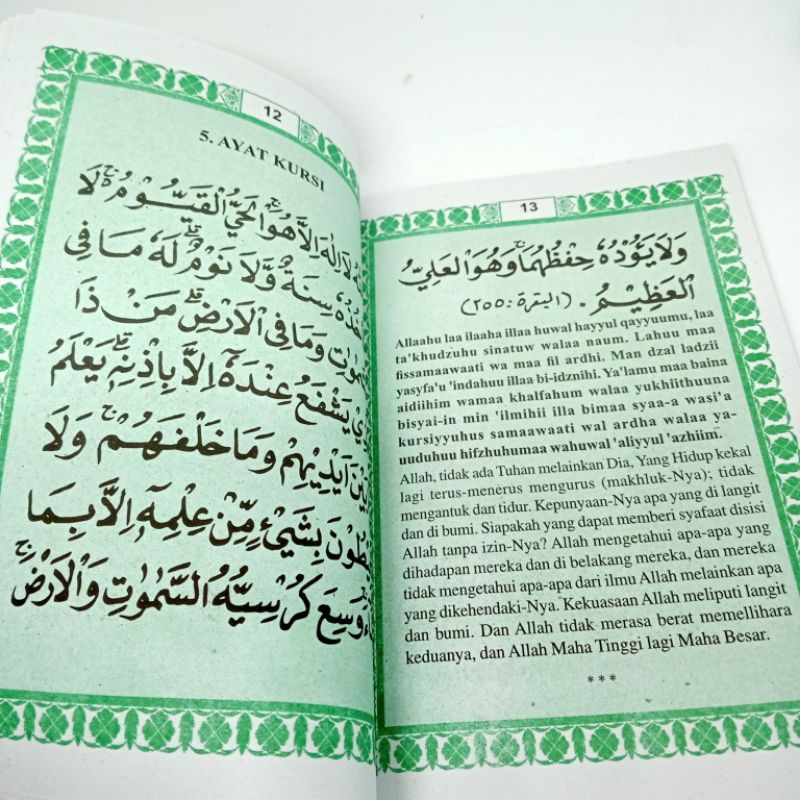 12
5. AYAT KURSI
لَا اِلٰهَ اِلَّا هُوَ الْحَيُّ الْقَيُّوْمُ ۚ لَا
سِنَةٌ وَّلَا نَوْمٌ ۗ لَهٗ مَا فِى
وَمَا فِى الْاَرْضِ ۗ مَنْ ذَا
يَشْفَعُ عِنْدَهٗٓ اِلَّا بِاِذْنِهٖ ۗ يَعْلَمُ
اَيْدِيْهِمْ وَمَا خَلْفَهُمْ ۚ وَلَا
بِشَيْءٍ مِّنْ عِلْمِهٖٓ اِلَّا بِمَا
وَسِعَ كُرْسِيُّهُ السَّمٰوٰتِ وَالْاَرْضَ ۚ
13
وَلَا يَئُوْدُهٗ حِفْظُهُمَا ۚ وَهُوَ الْعَلِيُّ
الْعَظِيْمُ . (البقرة : ٢٥٥)
Allaahu laa ilaaha illaa huwal hayyul qayyuumu, laa
ta'khudzuhu sinatuw walaa naum. Lahuu maa
fissamaawaati wa maa fil ardhi. Man dzal ladzii
yasyfa'u 'indahuu illaa bi-idznihi. Ya'lamu maa baina
aidiihim wamaa khalfahum walaa yukhiithuuna
bisyai-in min 'ilmihii illa bimaa syaa-a wasi'a
kursiyyuhus samaawaati wal ardha walaa ya-
uuduhuu hifzhuhumaa wahuwal 'aliyyul 'azhiim.
Allah, tidak ada Tuhan melainkan Dia, Yang Hidup kekal
lagi terus-menerus mengurus (makhluk-Nya); tidak
mengantuk dan tidur. Kepunyaan-Nya apa yang di langit
dan di bumi. Siapakah yang dapat memberi syafaat disisi
Allah tanpa izin-Nya? Allah mengetahui apa-apa yang
dihadapan mereka dan di belakang mereka, dan mereka
tidak mengetahui apa-apa dari ilmu Allah melainkan apa
yang dikehendaki-Nya. Kekuasaan Allah meliputi langit
dan bumi. Dan Allah tidak merasa berat memellihara
keduanya, dan Allah Maha Tinggi lagi Maha Besar.
***